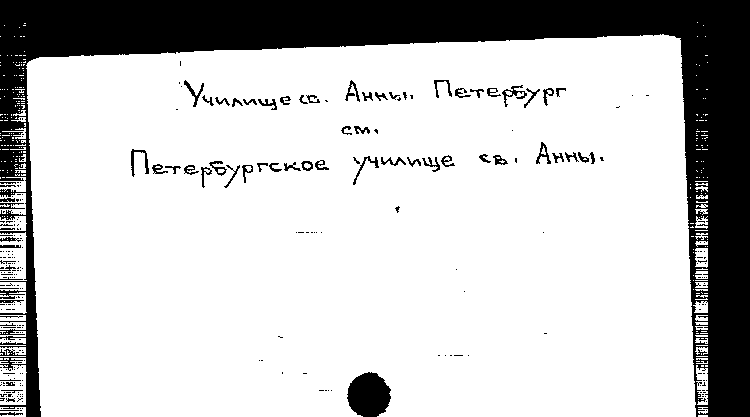 Училище св. Анны. Петербург
см.
Петербургское училище св. Анны.